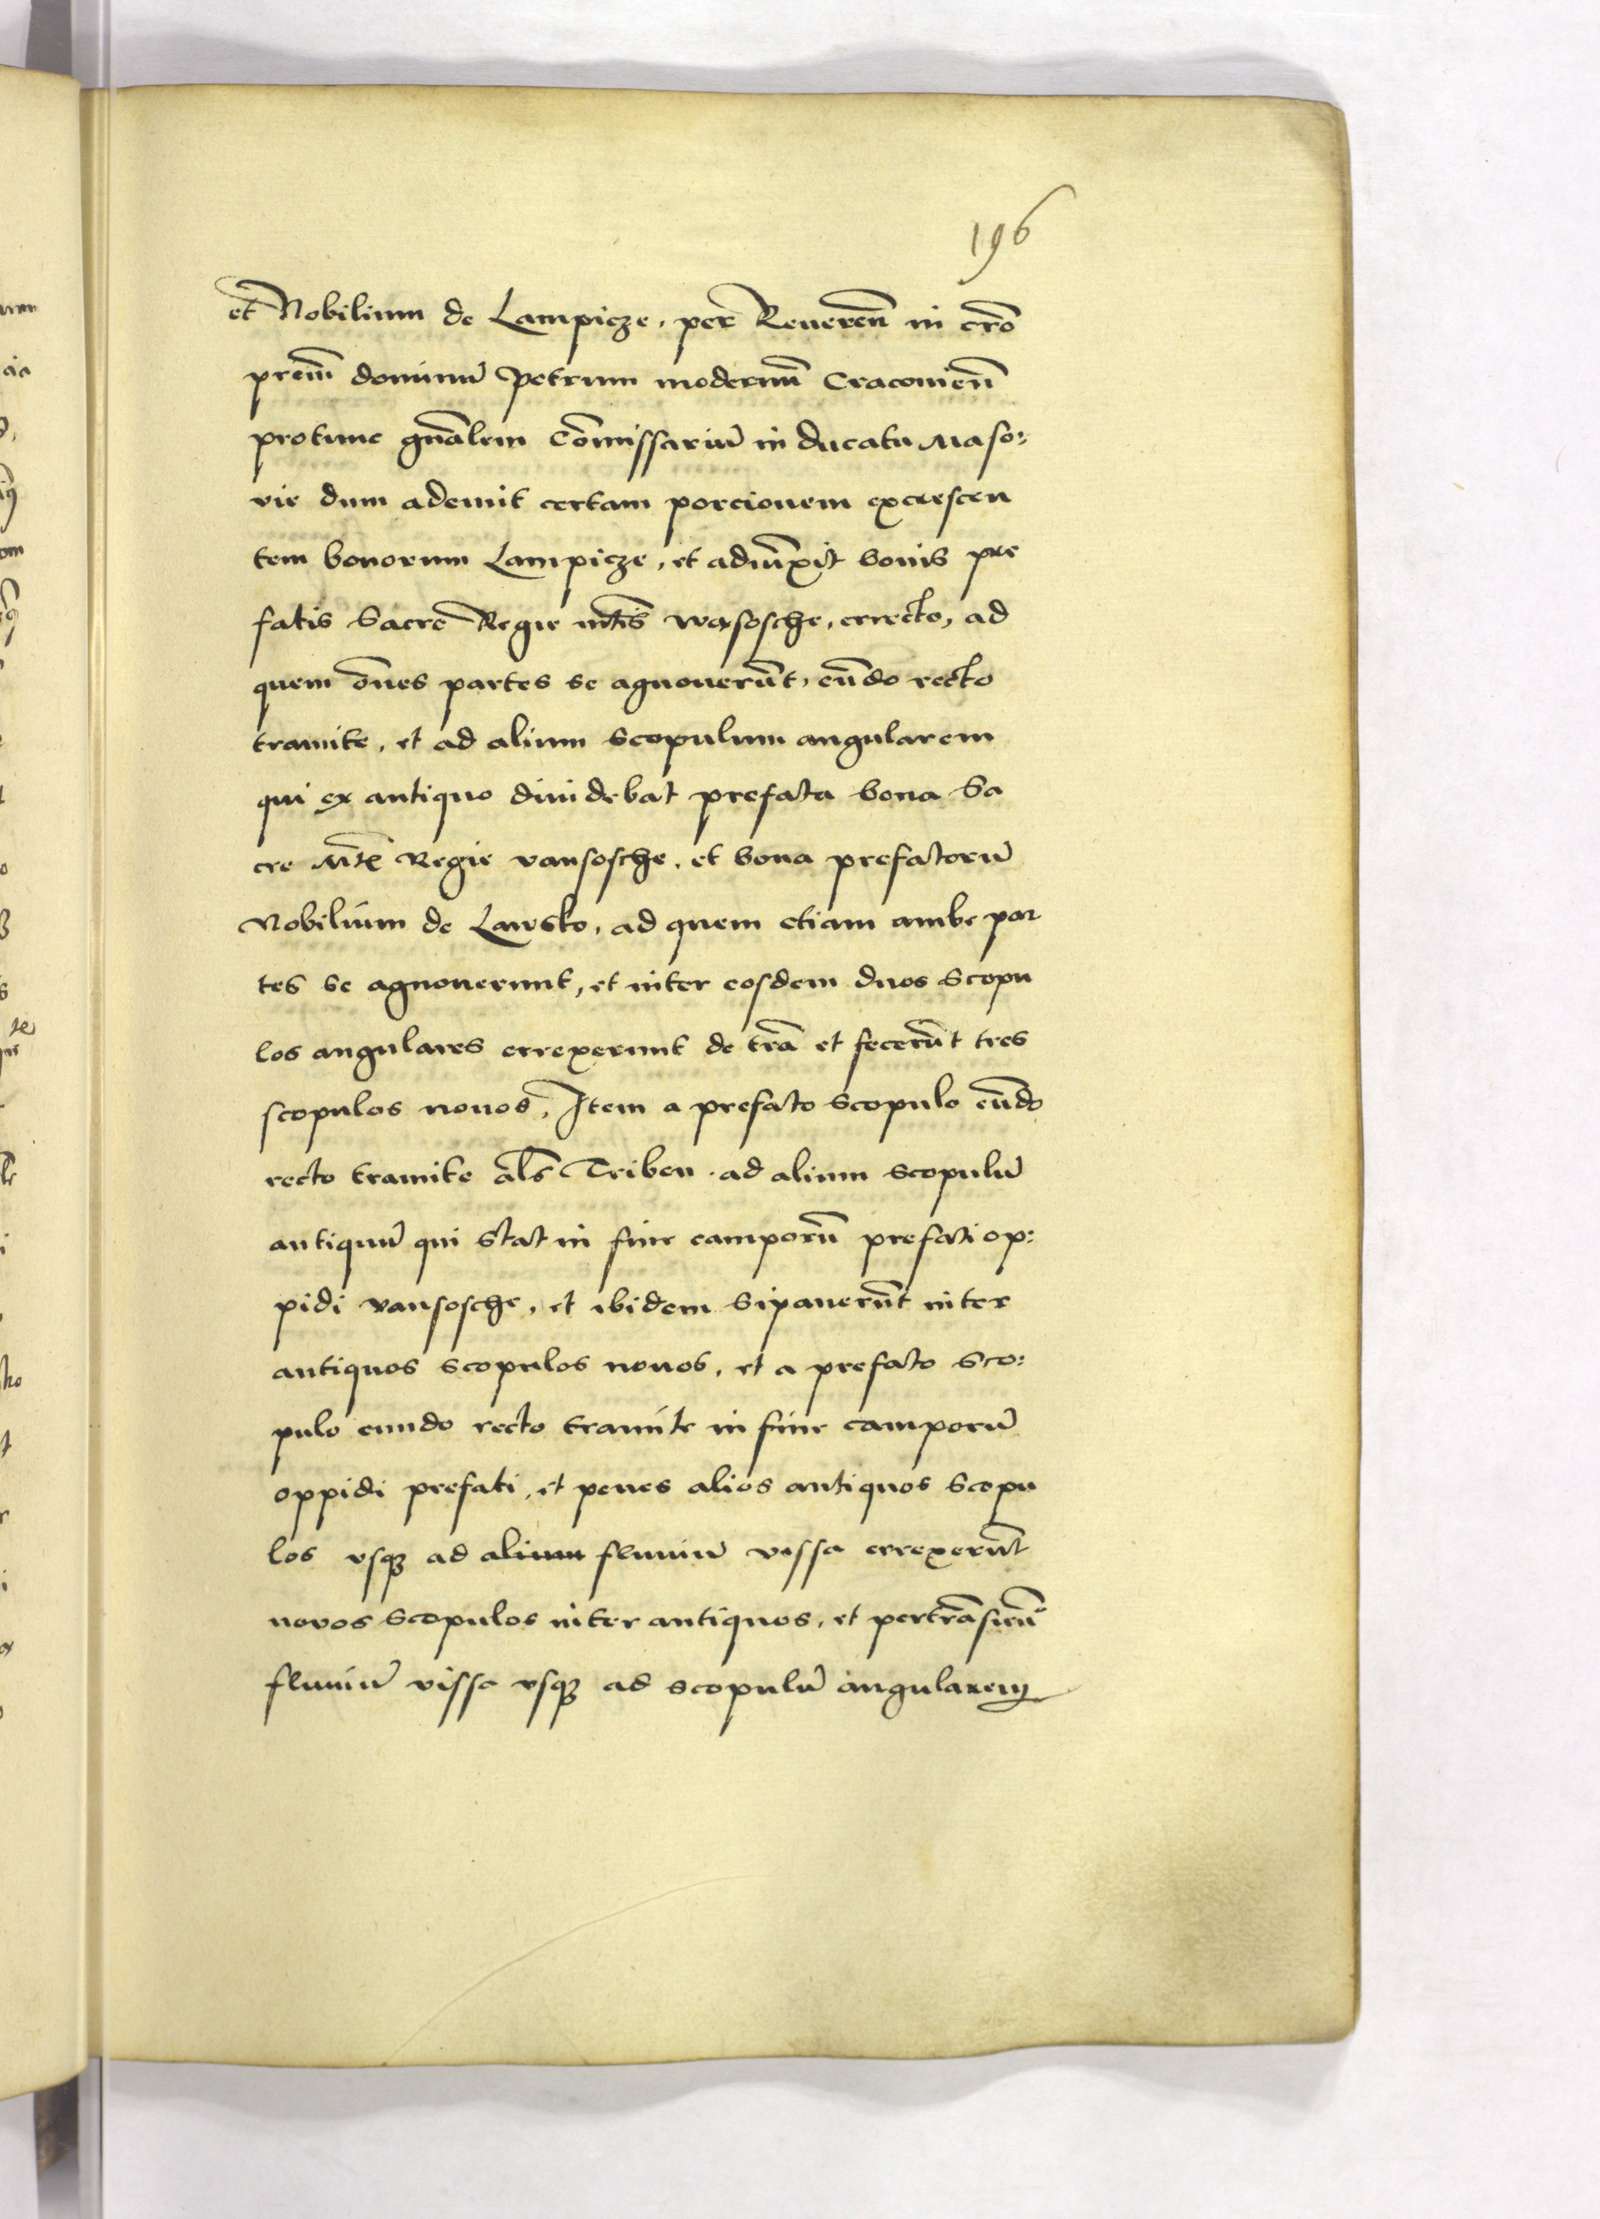 196
et Nobilium de Lampicze, per Reueren̄ in cr̄o
prem̄ dominū Petrum modernū Cracouien̄
protunc gn̄alem Com̄issariū in ducatu Maso:
vie dum ademit certam porcionem excrescen
tem bonorum Lampicze, et adiūxit bonis pre
fatis Sacre Regie mt̄is Wasosche, errecto, ad
quem om̄es partes se agnouerūt, eūdo recto
tramite, et ad alium scopulum angularem
qui ex antiquo diuidebat prefata bona Sa
cre Mt̄e Regie vansosche, et bona prefatorū
Nobilium de Lawsko, ad quem etiam ambe par
tes se agnouerunt, et inter eosdem duos scopu
los angulares errexerunt de tr̄a et fecerūt tres
scopulos nouos, Item a prefato scopulo eūdo
recto tramite al̄s Triben ad alium scopulū
antiquū qui stat in fine camporū prefati op:
pidi vansosche, et ibidem sipauerūt inter
antiquos scopulos nouos, et a prefato sco:
pulo eundo recto tramite in fine camporū
oppidi prefati, et penes alios antiquos scopu
los vsqȝ ad alium fluuiū vissa errexerūt
novos scopulos inter antiquos, et pertrāsierū̄
fluuiū vissa vsqȝ ad scopulū angularem